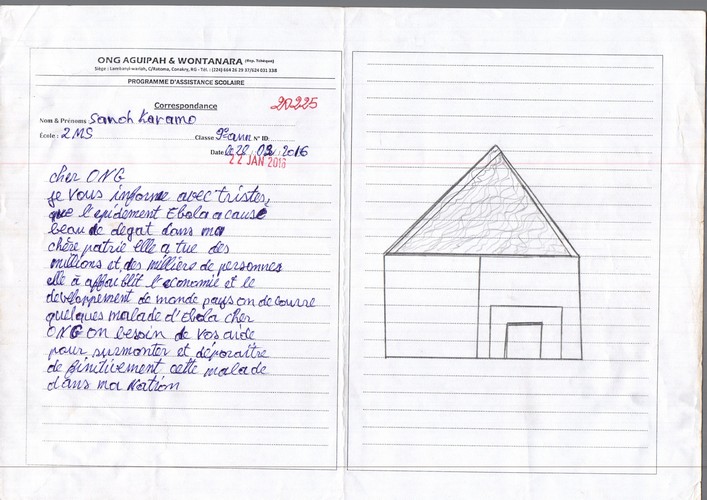 ONG AGUIPAH & WONTANARA (Rép. Tchèque)
Siège : Lambanyi-wariah, C/Ratoma, Conakry, RG - Tél. : (224) 664 26 29 37/624 031 338
PROGRAMME D'ASSISTANCE SCOLAIRE
Correspondance
20225
Nom & Prénoms Sanoh Karamo
École : 2 MS Classe 9e ann N° ID:
Date 2016
22 JAN 2016
cher ONG
je vous informe avec tristes,
que l'epidement Ebola a causé
beau de degat dans ma
chère patrie elle a tue des
millions et des milliers de personnes
elle à affaiblit l'economie et le
developpement de monde pays on decouvre
quelques malade d'Ebola cher
ONG on besoin de vos aide
pour surmonter et disparaître
definitivement cette malade
dans ma Nation